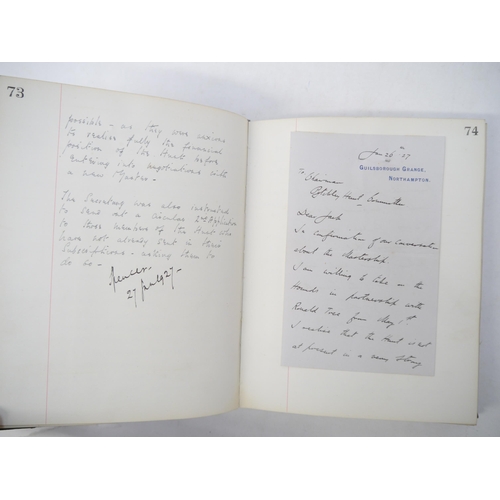 73
possible - as they were anxious
to realise fully the financial
position of the Hunt before
entering into negotiations with
a new Master.
The Secretary was also instructed
to send out a circular 2nd Application
to those members of the Hunt who
have not already sent in their
Subscriptions - asking them to
do so -
Spencer -
27 Jan 1927 -
74
Jan 26th 27
Guilsborough Grange,
Northampton.
To Chairman
Pytchley Hunt Committee
Dear Jack
In confirmation of our conversation
about the Mastership
I am willing to take on the
Hounds in partnership with
Ronald Tree from May 1st
I realise that the Hunt is not
at present in a very strong